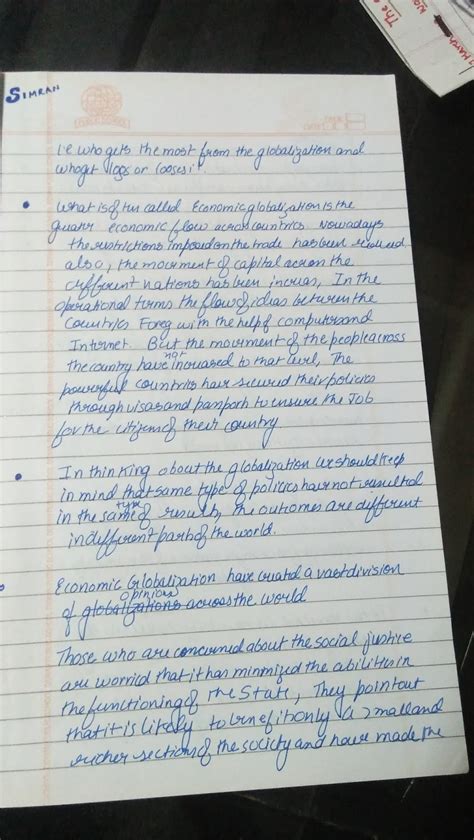 The
March
SIMRAN
i.e who gets the most from the globalization and
whoget less or looses it.
What is often called Economic globalization is the
greater economic flow across countries. Nowadays
the restrictions imposed on the trade has been reduced
also, the movement of capital across the
different nations has been increas, In the
operational terms the flow of ideas between the
Countries Foreg with the help of computers and
Internet. But the movement of the people across
the country have not increased to that level, The
powerful countries have secured their policies
through visas and passports to ensure the Job
for the citizens of their country
In thinking about the globalization we should keep
in mind that same type of policies have not resulted
in the same type of results, the outcomes are different
in different part of the world.
Economic Globalization have created a vast division
of globalizations opinions across the world
Those who are concerned about the social justice
are worried that it has minimized the abilities in
the functioning of the State, They point out
that it is likely to benefit only a small and
richer section of the society and have made the